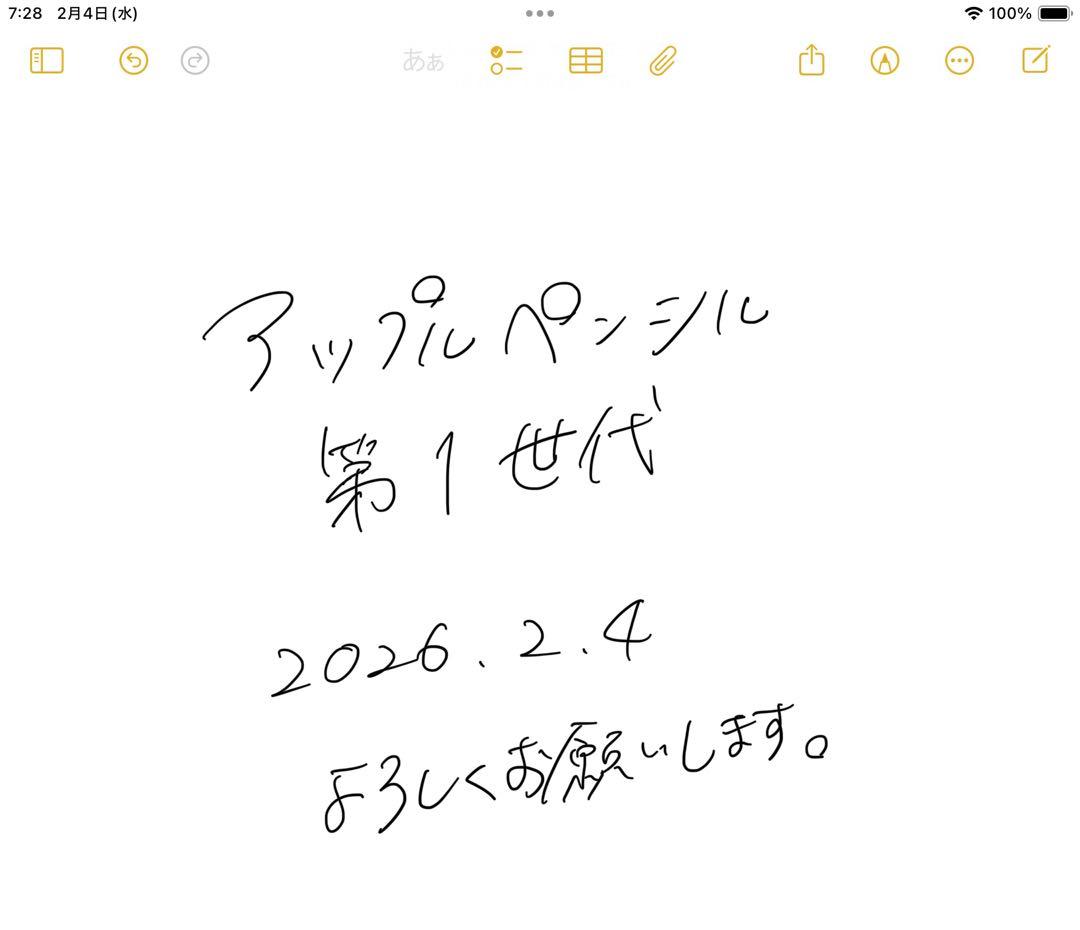 7:28 2月4日(水) 100%
あぁ
アップルペンシル
第1世代
2026.2.4
よろしくお願いします。